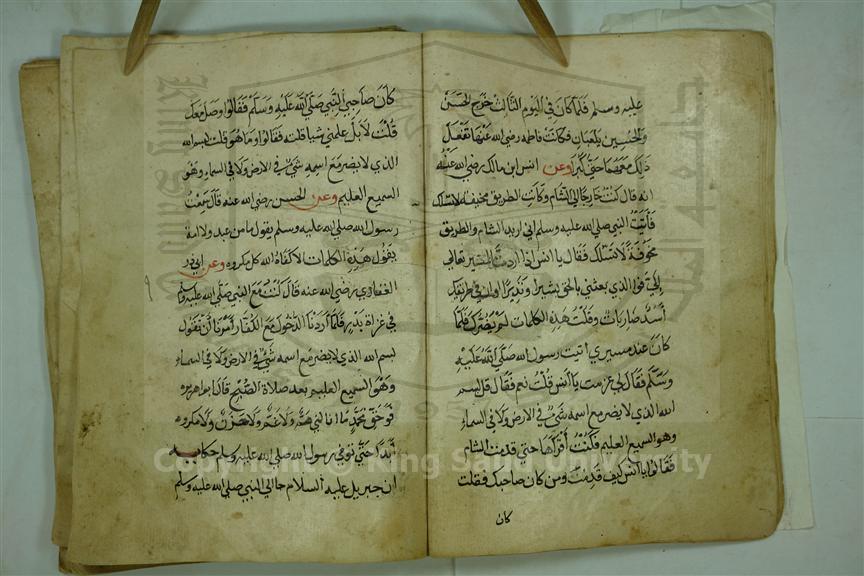 عليه وسلم فلما كان في اليوم الثالث خرج الحسن
والحسين يلعبان فكانت فاطمه رضي الله عنها تفعل
ذلك معهما حتى كبرا وعن انس ابن مالك رضي الله عنه
انه قال كنت خارجا الى الشام وكانت الطريق مخيفة لا تسلك
فأتيت النبي صلى الله عليه وسلم اني اريد الشام والطريق
مخوفة لا تسلك فقال يا انس اذا اردت المسير تعالى
إلي فوالذي بعثني بالحق بشيرا ونذيرا لو ان في طريقك
أسد ضاريات وقلت هذه الكلمات لم يضرك فلما
كان عند مسيري أتيت رسول الله صلى الله عليه
وسلم فقال لي عزمت يا أنس قلت نعم فقال قل بسم
الله الذي لا يضر مع اسمه شئ في الارض ولا في السماء
وهو السميع العليم فكنت أقرأها حتى قدمت الشام
فقالوا يا أنس كيف قدمت ومن كان صاحبك فقلت
كان
كان صاحبي النبي صلى الله عليه وسلم فقالوا وصل معك
قلت لا بل علمني شيا قلته فقالوا وما هو قلت بسم الله
الذي لا يضر مع اسمه شئ في الارض ولا في السماء وهو
السميع العليم وعن الحسن رضي الله عنه قال سمعت
رسول الله صلى الله عليه وسلم يقول ما من عبد ولا امة
يقول هذه الكلمات الا كفاه الله كل مكروه وعن ابي ذر
الغفاري رضي الله عنه قال كنت مع النبي صلى الله عليه وسلم
في غزاة بدر فلما أردنا الدخول مع الكفار أمرنا أن نقول
بسم الله الذي لا يضر مع اسمه شئ في الارض ولا في السماء
وهو السميع العليم بعد صلاة الصبح قال ابو هريره
فوحق محمد ما انا لني هم ولا غم ولا حزن ولا مكروه
أبدا حتى توفي رسول الله صلى الله عليه وسلم حكايه
ان جبريل عليه السلام جا الى النبي صلى الله عليه وسلم
Copyright © King Saud University